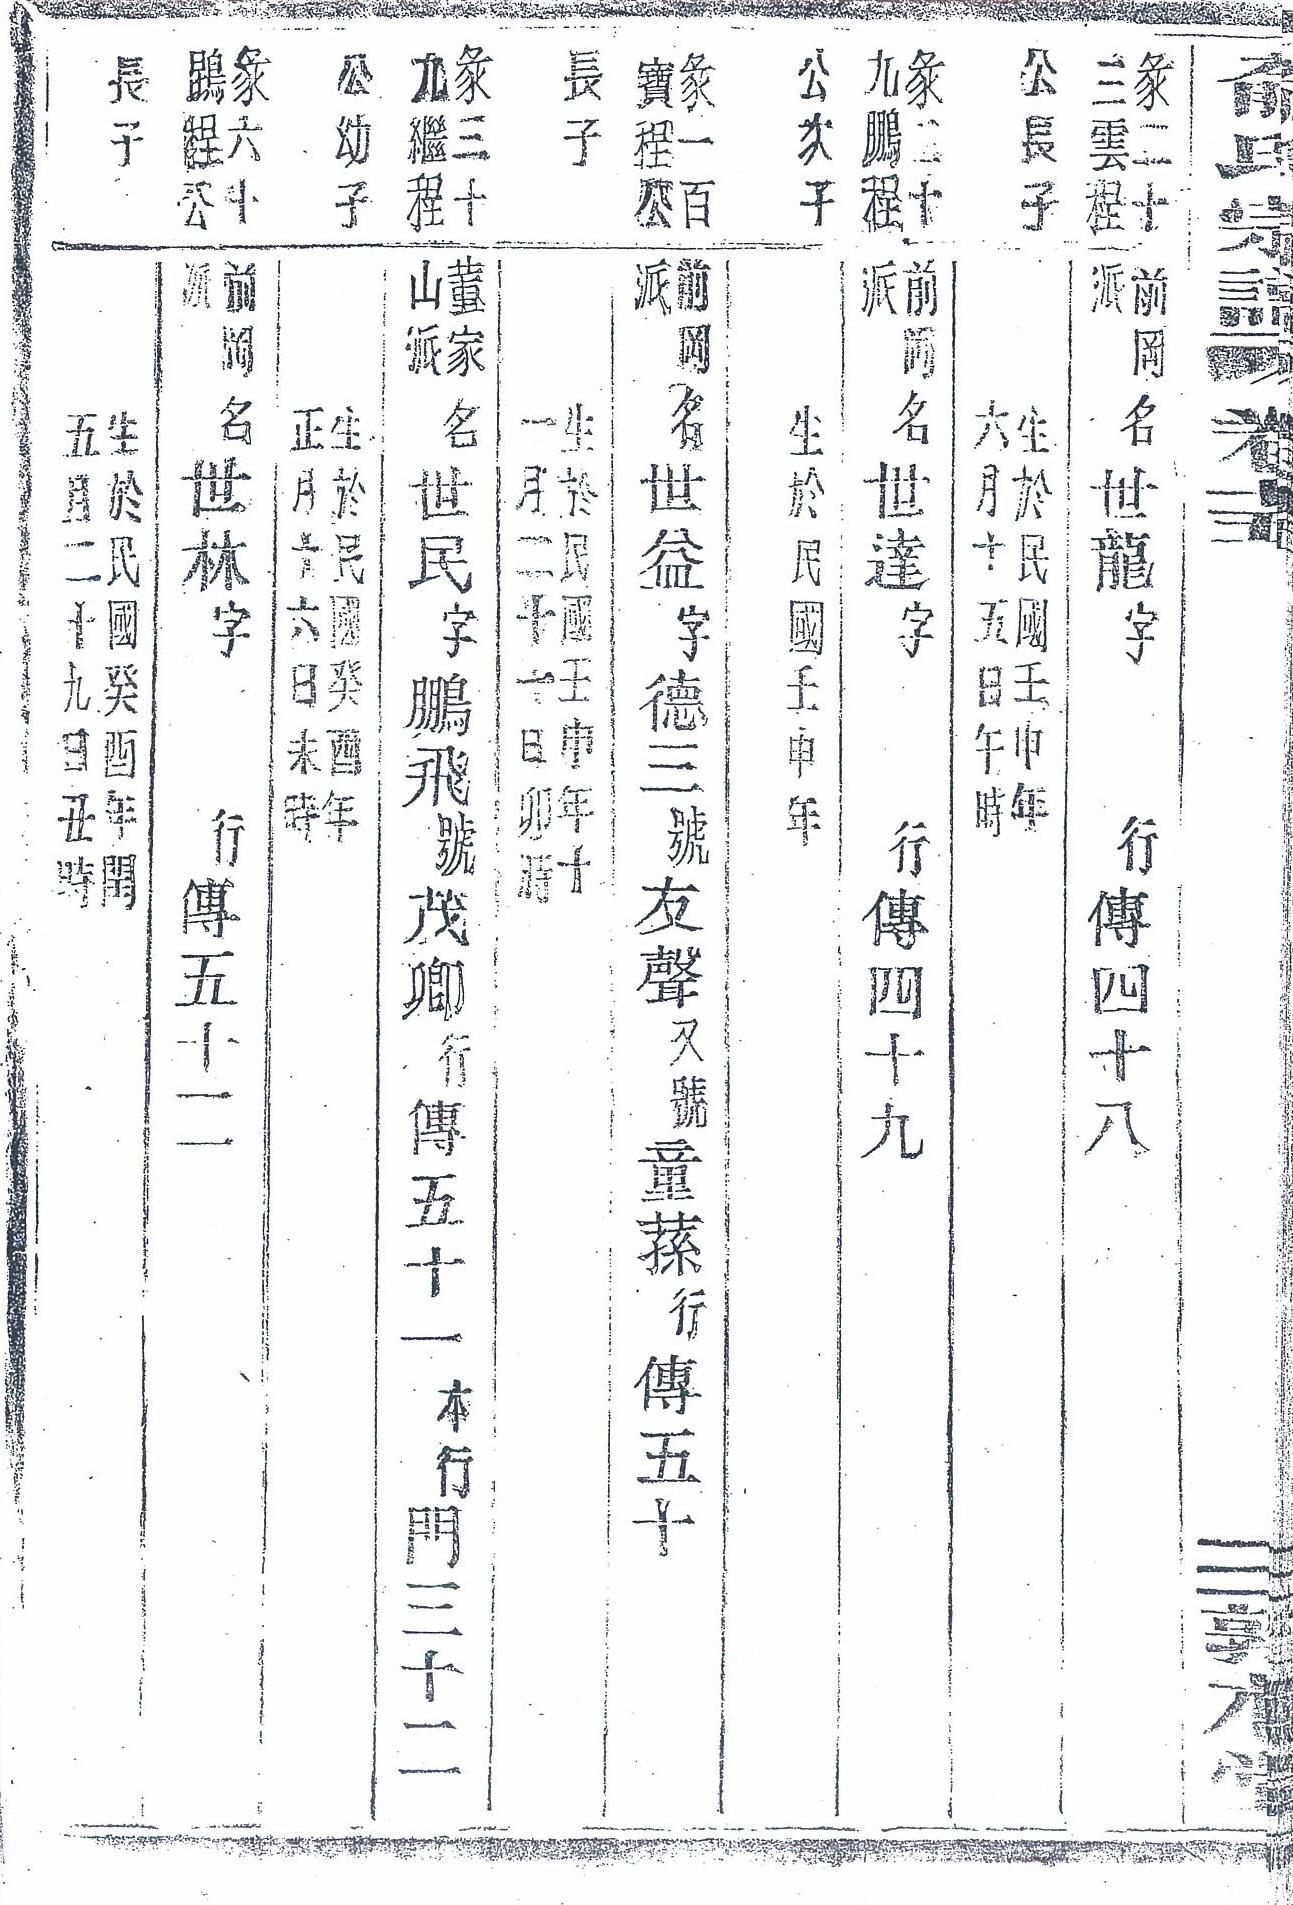 俞氏宗譜 卷三
彖二十
三雲程
公長子
前岡
派
名世龍字 行傳四十八
生於民國壬申年
六月十五日午時
彖二十
九鵬程
公次子
前岡
派
名世達字 行傳四十九
生於民國壬申年
彖一百
寶程公
長子
前岡
派
名世益字德三號友聲又號童蓀行傳五十
生於民國壬申年十
一月二十十日卯時
彖三十
九繼程
公幼子
董家
山派
名世民字鵬飛號茂卿行傳五十一 本行門三十二
生於民國癸酉年
正月十六日未時
彖六十
鵾程公
長子
前岡
派
名世林字 行傳五十二
生於民國癸酉年閏
五月二十九日丑時